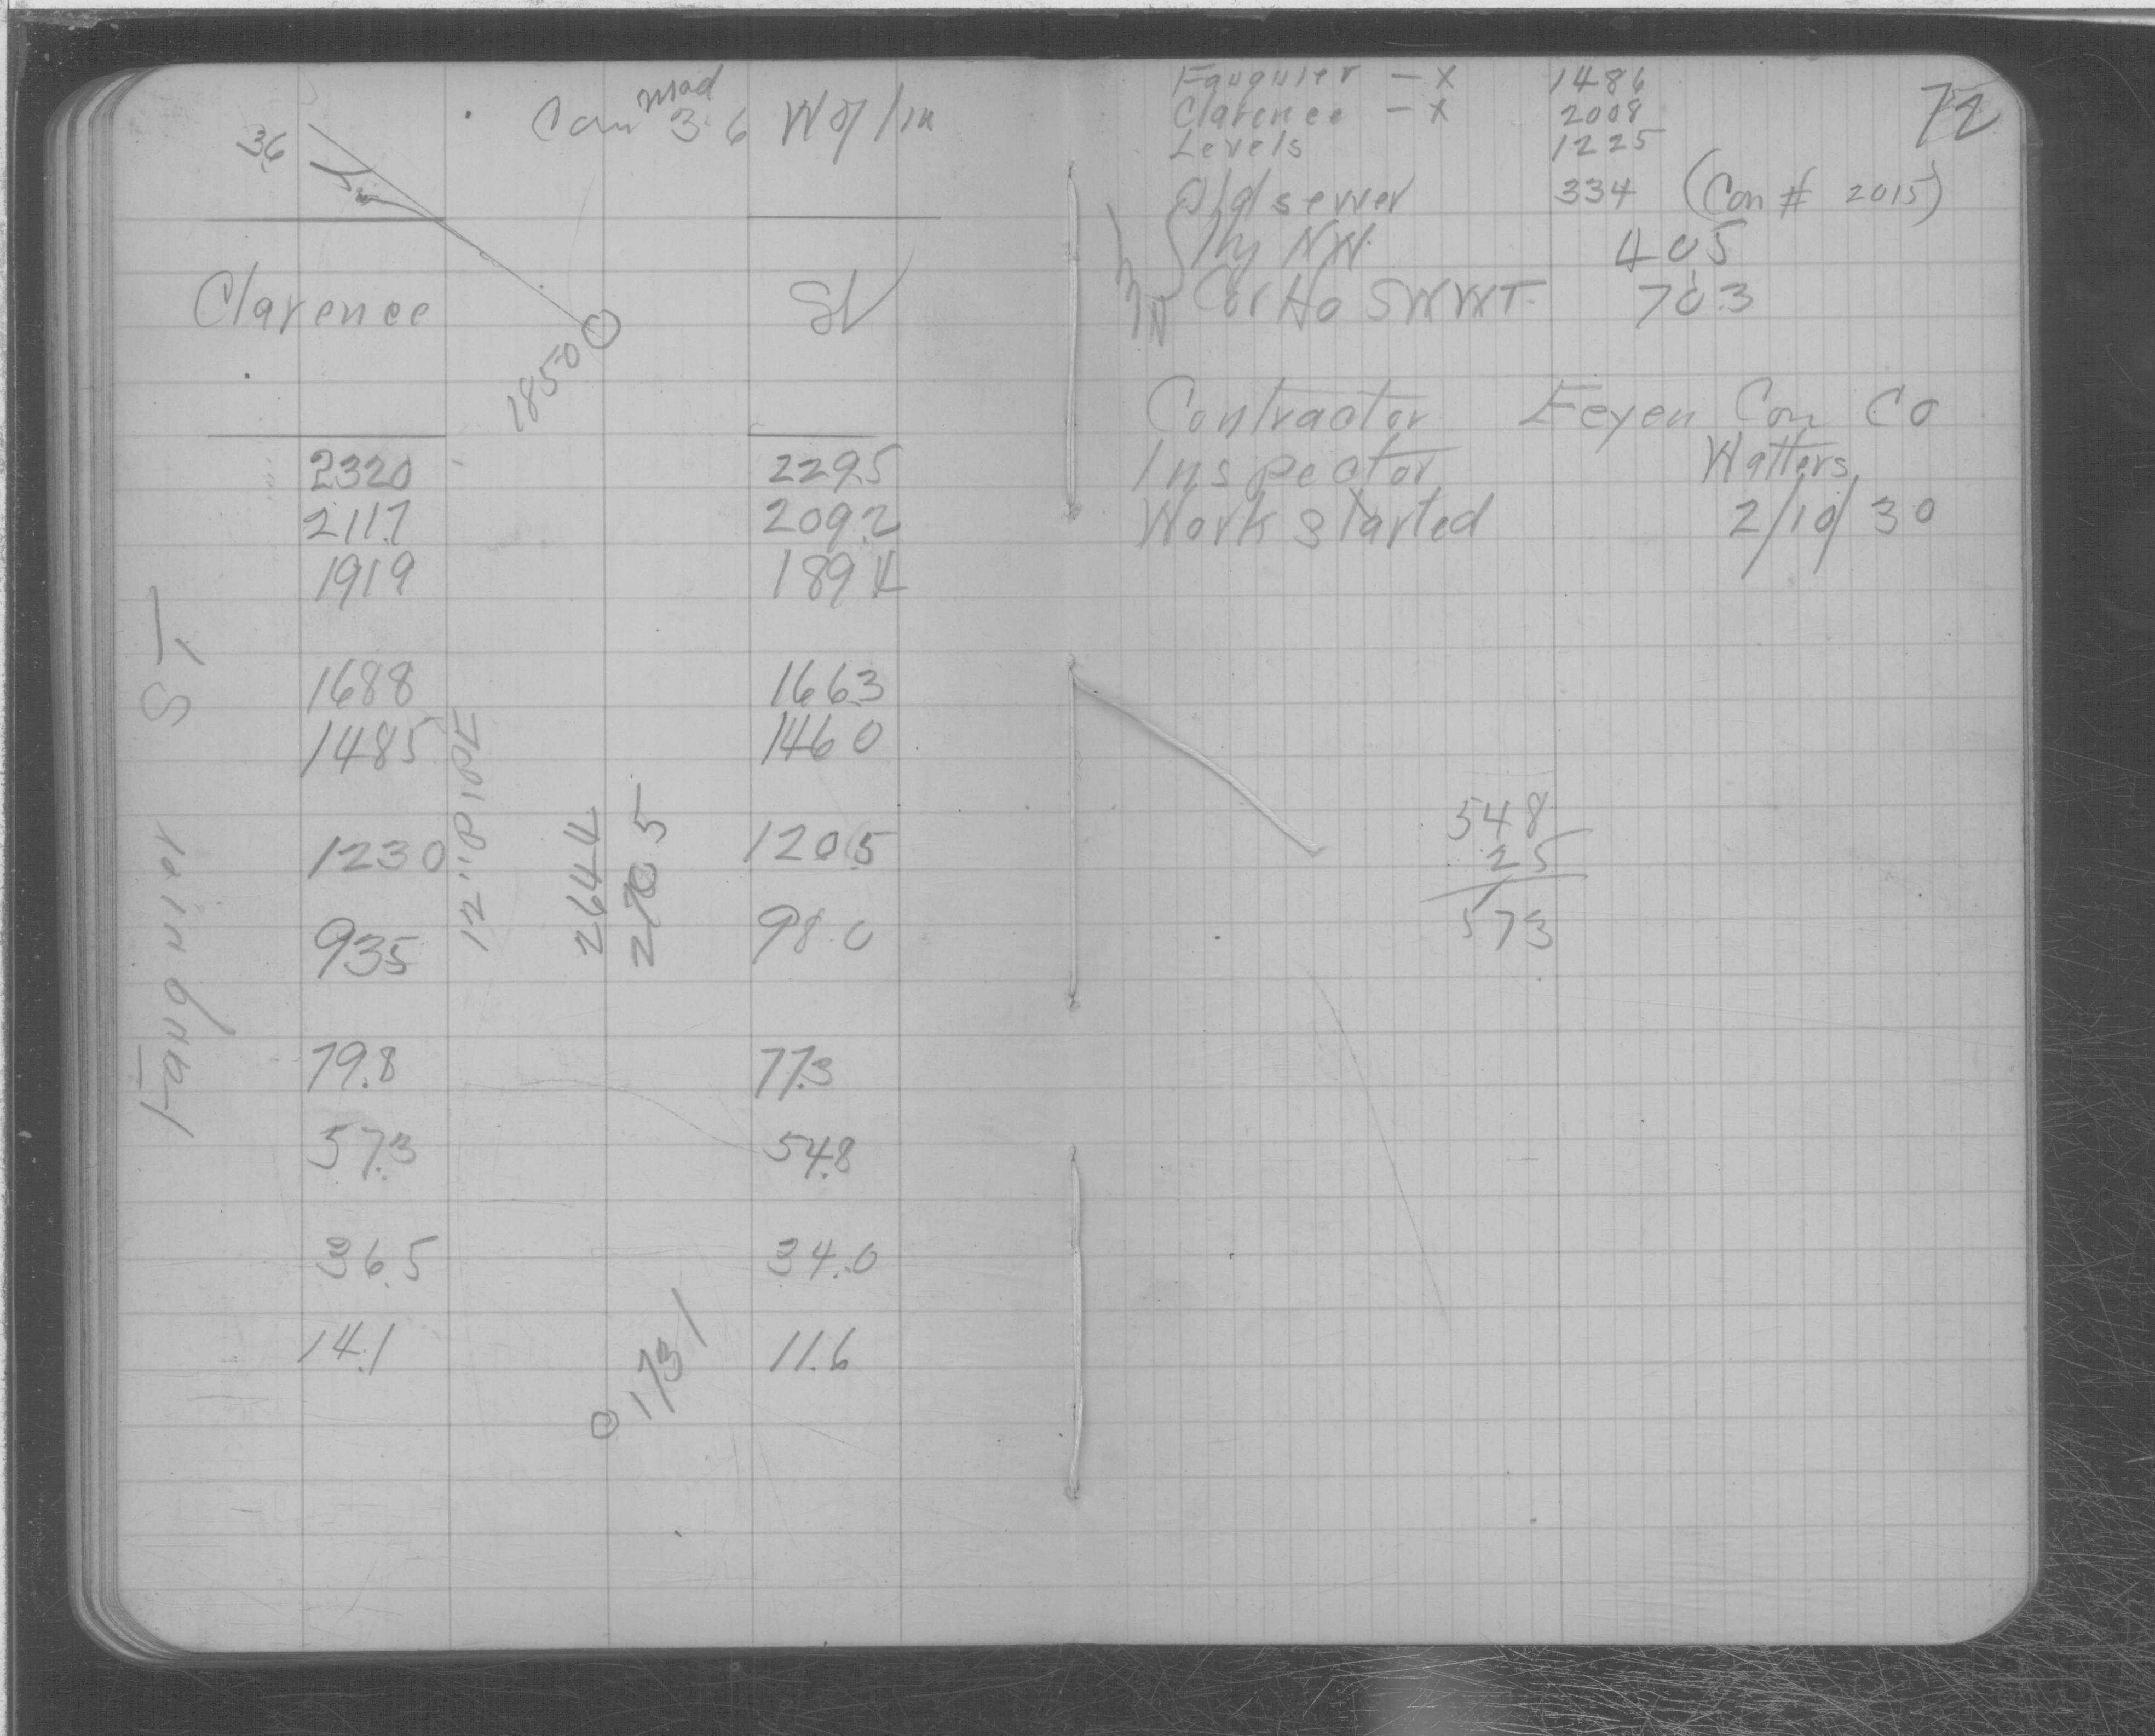 36
Con 3.6 W of lin
Mad
Clarence
St
1850
2320 2295
211.7 209.2
1919 189 4
1688 166.3
1485 146 0
1230 120.5
935 98.0
79.8 77.3
57.3 54.8
36.5 34.0
14.1 11.6
Fauquier ST
12" PIPE
264 4
270 5
173 1
72
Fauquier - X 1486
Clarence - X 2008
Levels 1225
Old sewer 334 (Con # 2015)
Hy NW 405
Cor Ho SWWT 703
Contractor Feyen Con Co
Inspector Watters
Work started 2/10/30
548
25
573